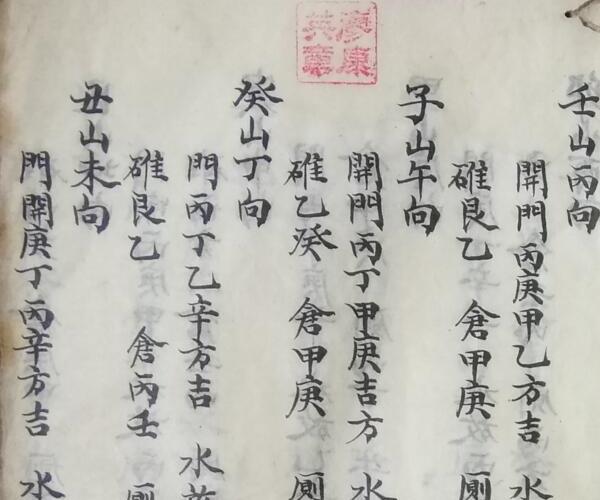 壬山丙向
開門丙庚甲乙方吉
碓艮乙 倉甲庚 厠
子山午向
開門丙丁甲庚吉方 水
碓乙癸 倉甲庚 厠
癸山丁向
門丙丁乙辛方吉 水
碓艮乙 倉丙壬 厠
丑山未向
門開庚丁丙辛方吉 水
廖康
英章